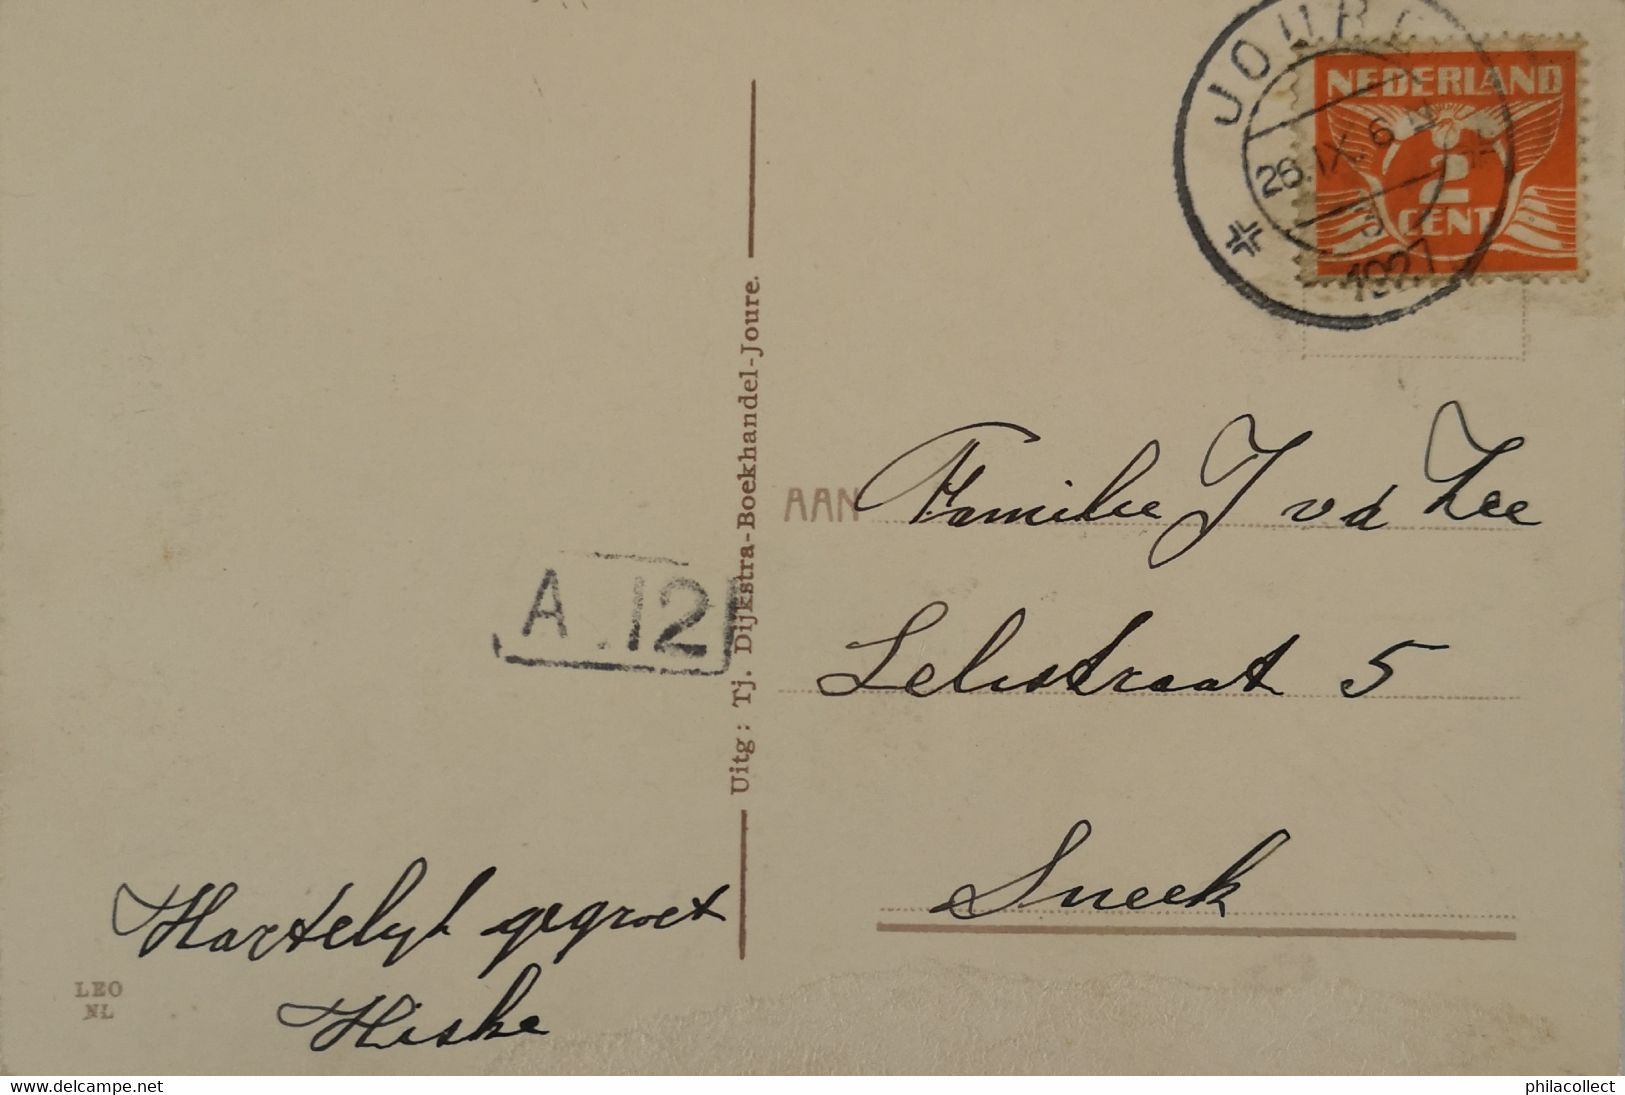 JOURE
26.IX. 6 N
1927
NEDERLAND
2
CENT
Uitg: Tj. Dijkstra-Boekhandel-Joure.
A 12
AAN Familie J v d Zee
Lelistraat 5
Sneek
Hartelijk gegroet
Hiske
LEO
NL
www.delcampe.net
philacollect